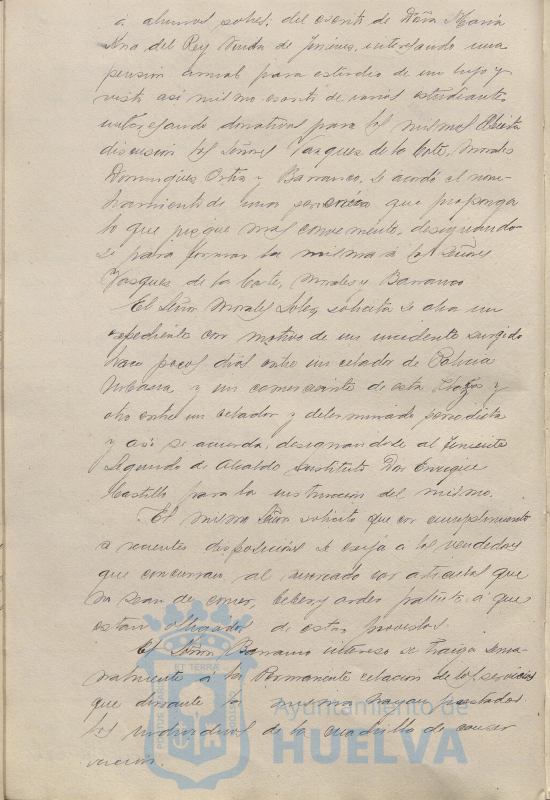 á alumnos pobres; del escrito de Doña María
Ana del Rey Viuda de Jimenez, interesando una
pensión anual para estudio de un hijo y
vista asi mismo escrito de varios estudiantes
interesando donativos para los mismos. Abierta
discusion los Señores Vazquez de la Corte, Morales
Dominguez Ortiz y Barranco, se acordó el nom-
bramiento de una ponencia que proponga
lo que juzgue mas conveniente, designando-
se para formar la misma á los Señores
Vasquez de la Corte, Morales y Barranco
El Señor Morales solicita se abra un
expediente con motivo de un incidente surgido
hace pocos dias entre un celador de Policia
Urbana y un comerciante de esta Plaza y
otro entre un celador y determinado periodista
y asi se acuerda, designandole al Teniente
Segundo de Alcalde Sustituto Don Enrique
Castillo para la instruccion del mismo.
El mismo Señor solicita que en cumplimiento
a recientes disposiciones se exija á los vendedores
que concurran al mercado con articulos que
no sean de comer, beber y arder patente á que
estan obligados de estar provistos.
El Señor Barranco interesa se traiga sema-
nalmente á la Permanente relacion de los servicios
que durante la misma hayan prestados
los individuos de la cuadrilla de conser
vacion.
Ayuntamiento de
HUELVA
ET TERRA
PORTUS MARIS
CUSTODIA